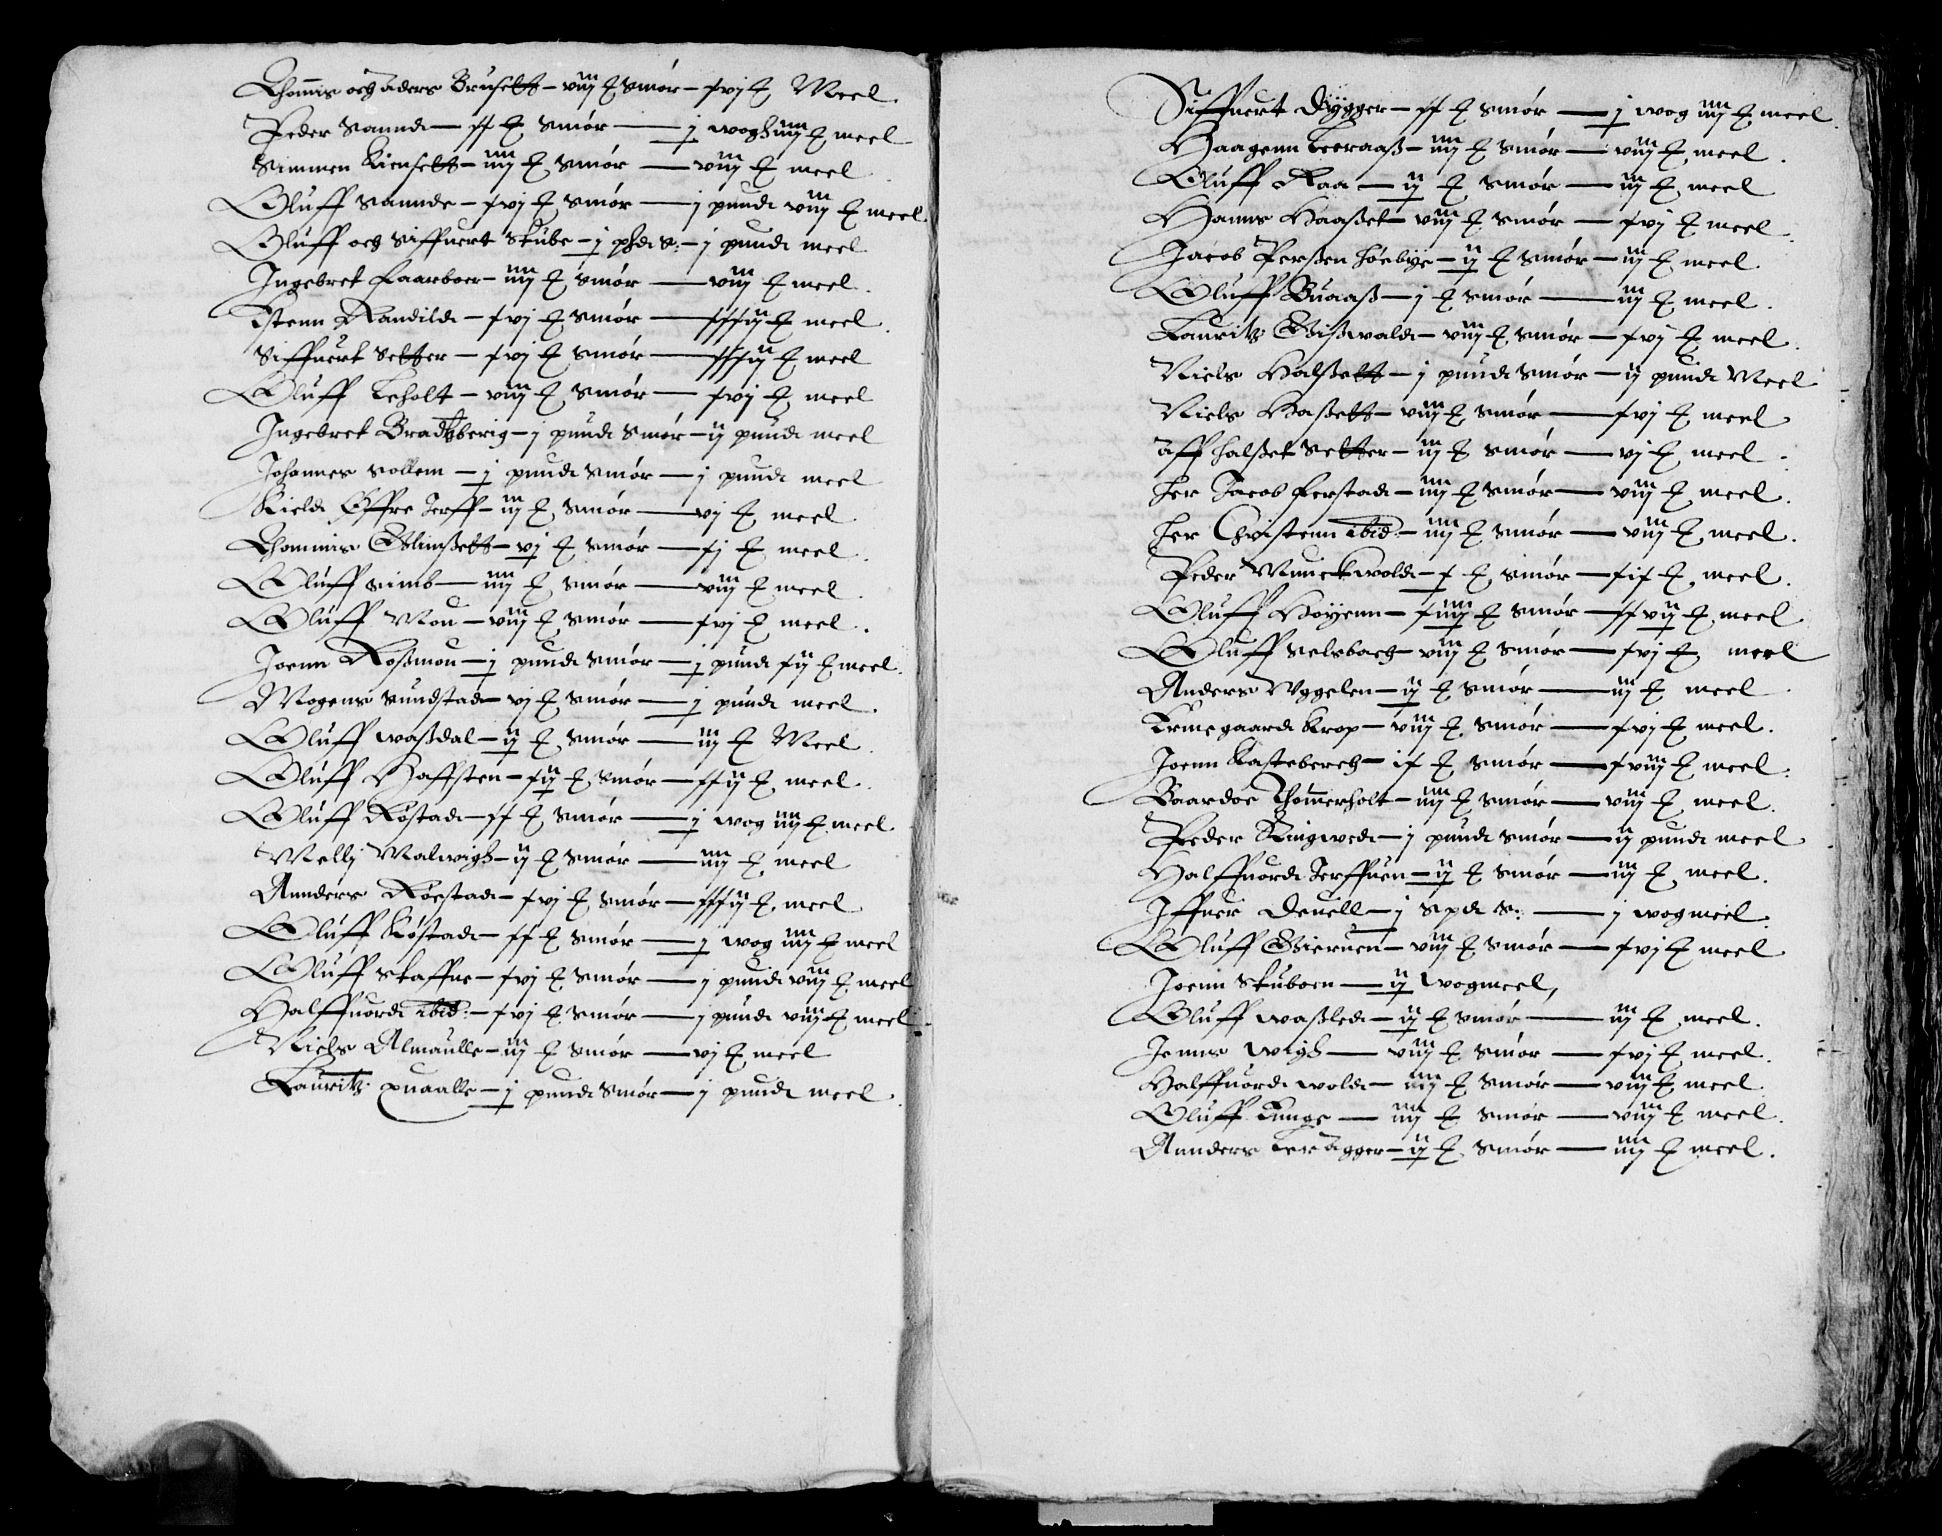 Thommis och Aders Brusett – viiij ℔ smør – xvj ℔ Meel
Peder Sannd – xx ℔ smør – j wogh iiij ℔ meel
Simmen Kiensett – iiij ℔ smør – viij ℔ meel
Oluff Sannde – xvj ℔ smør – j pund viij ℔ meel
Oluff och Siffuert Skube – j phd s: – j pund meel
Ingebret Faarboer – iiij ℔ smør – viij ℔ meel
Estenn Randild – xvj ℔ smør – xxxij ℔ meel
Siffuert Setter – xvj ℔ smør – xxxij ℔ meel
Oluff Leholt – viij ℔ smør – xvj ℔ meel
Ingebret Bradtzberig – j pund smør – ij pund meel
Johannes Sollem – j pund smør – j pund meel
Kield Øffre Jerff – iij ℔ smør – vj ℔ meel
Thommis Glimsett – vj ℔ smør – xj ℔ meel
Oluff Simb – iiij ℔ smør – viij ℔ meel
Oluff Mou – viij ℔ smør – xvj ℔ meel
Joenn Rossmou – j pund smør – j pund xij ℔ meel
Mogens Sundstad – vj ℔ smør – j pund meel
Oluff Wassdal – ij ℔ smør – iiij ℔ Meel
Oluff Haffsten – xij ℔ smør – xxij ℔ meel
Oluff Røstad – xx ℔ smør – j wog iiij ℔ meel
Melli Malwigh – ij ℔ smør – iiij ℔ meel
Annders Røestad – xvj ℔ smør – xxxij ℔ meel
Oluff Røstad – xx ℔ smør – j wog iiij ℔ meel
Oluff Skaffne – xvj ℔ smør – j pund viij ℔ meel
Halffuord ibid: – xvj ℔ smør – j pund viij ℔ meel
Niels Almaulle – iij ℔ smør – vj ℔ meel
Lauritz puaalle – j pund smør – j pund meel
Siffuert Dygger – xx ℔ smør – j wog iiij ℔ meel
Haagenn Leeraass – iiij ℔ smør – viij ℔ meel
Oluff Raa – ij ℔ smør – iiij ℔ meel
Hanns Haasset – viij ℔ smør – xvj ℔ meel
Jacob Perssen Høebye – ij ℔ smør – iiij ℔ meel
Oluff Buaass – j ℔ smør – iij ℔ meel
Lauritz Gisswald – viij ℔ smør – xvj ℔ meel
Niels Halssett – j pund smør – ij pund Meel
Niels Hassett – viij ℔ smør – xvj ℔ meel
Aff halsset Setter – iij ℔ smør – vj ℔ meel
Her Jacob Ferstad – iiij ℔ smør – viij ℔ meel
Her Christenn ibid: – iiij ℔ smør – viij ℔ meel
Peder Munckwold – x ℔ smør – xix ℔ meel
Oluff Høyenn – xiiij ℔ smør – xxvij ℔ meel
Oluff Selsbach – viij ℔ smør – xvj ℔ meel
Anders Wggelen – ij ℔ smør – iij ℔ meel
Ermegaard Krop – viij ℔ smør – xvj ℔ meel
Joenn Kastebereg – ix ℔ smør – xviij ℔ meel
Baardoe Thommerholt – iiij ℔ smør – viij ℔ meel
Peder Ringwed – j pund smør – ij pund meel
Halffuord Jerffuen – ij ℔ smør – iij ℔ meel
Iffuer Deuell – j spd s: – j wog meel
Oluff Gieruen – viij ℔ smør – xvj ℔ meel
Joenn Skuboen – ij wog meel,
Oluff Wassled – ij ℔ smør – iij ℔ meel
Jenns Wigh – viij ℔ smør – xvj ℔ meel
Halffuord wold – iiij ℔ smør – viij ℔ meel
Oluff Lunge – iiij ℔ smør – viij ℔ meel
Annders Leragger – ij ℔ smør – iiij ℔ meel